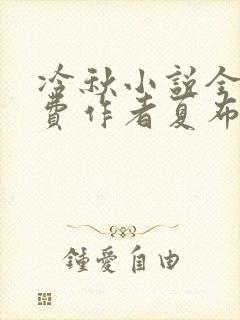 冷秋小説全
費作者夏布
鍾愛自由